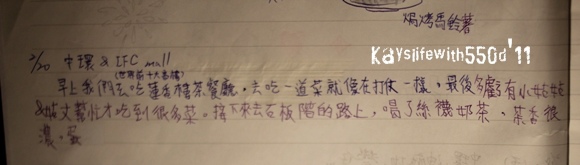 焗烤馬鈴薯
Kayslifewith550d'11
2/20 中環 & IFC mall
(世界前十大茶樓)
早上我們去吃蓮香樓茶餐廳,去吃一道菜就像在打仗一樣,最後多虧有小姑姑
&姑丈幫忙才吃到很多菜。接下來去石板階的路上,喝了絲襪奶茶,茶香很
濃,蛋